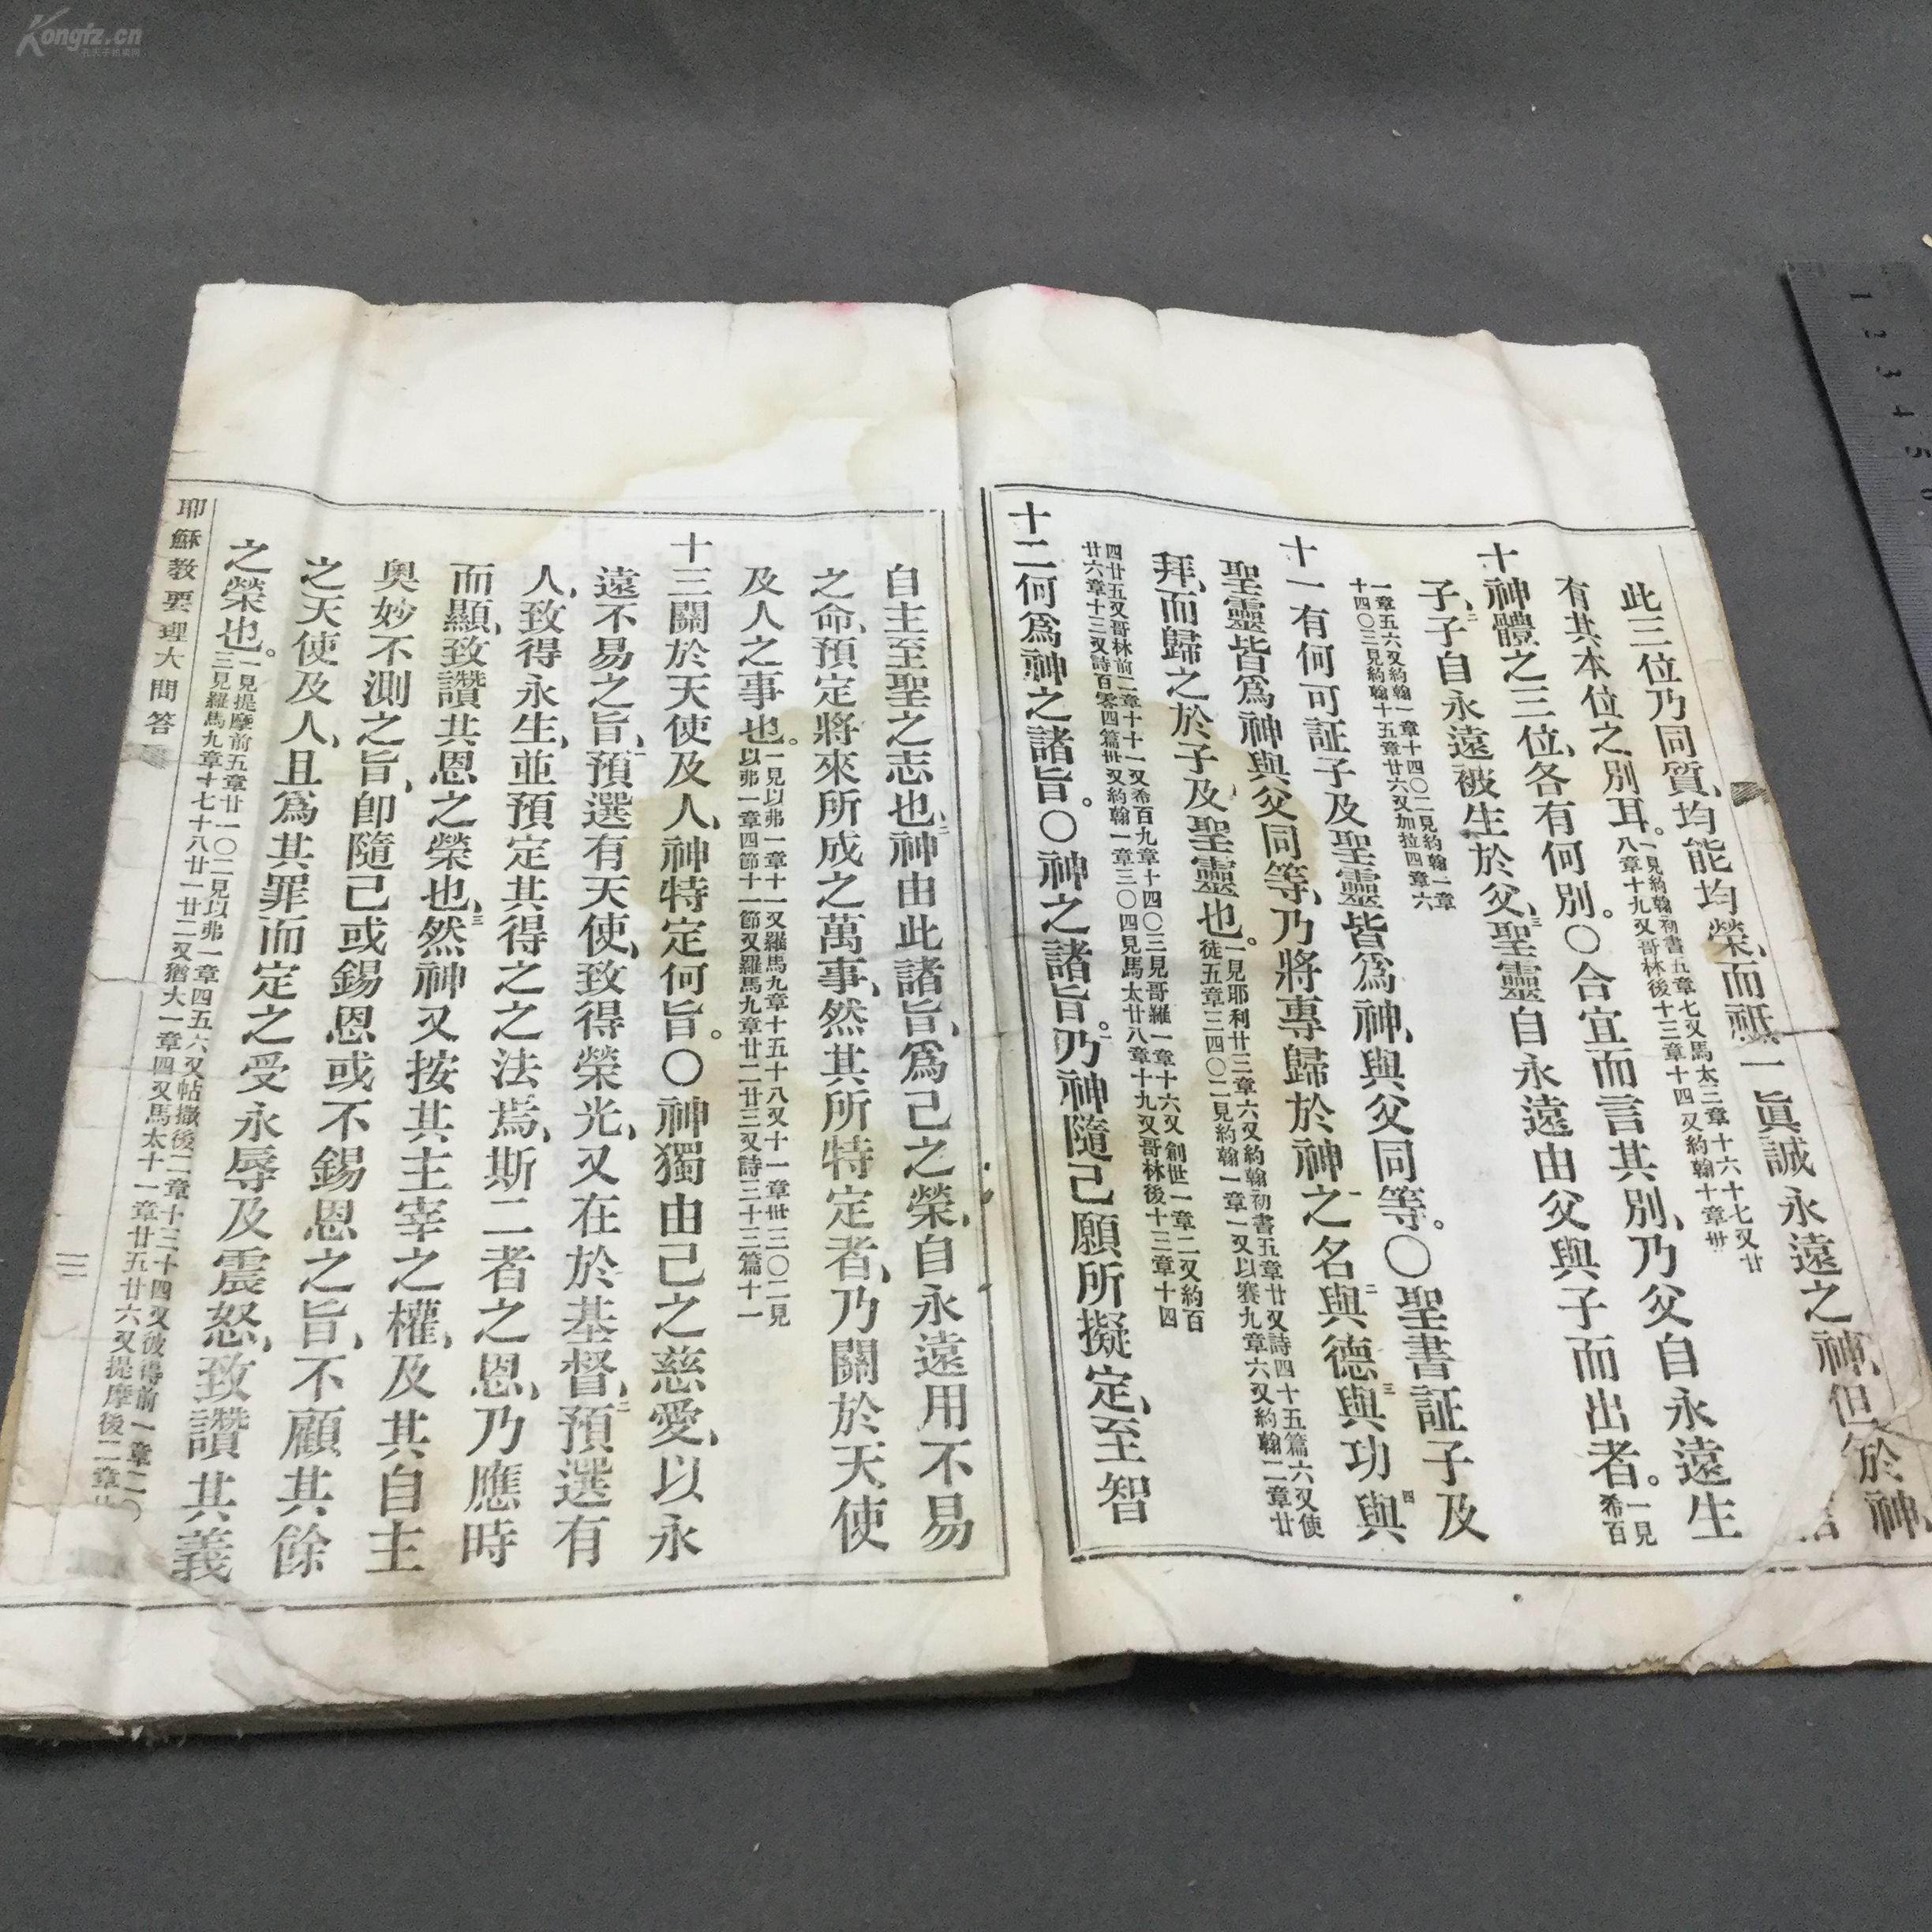 Kongfz.cn
此三位乃同質、均能均榮、而祇一眞誠永遠之神、但於神
有其本位之別耳。一見約翰初書五章七又馬太三章十六十七又廿
八章十九又哥林後十三章十四又約翰十章卅
十神體之三位、各有何別。〇合宜而言其別、乃父自永遠生
子、二子自永遠被生於父、三聖靈自永遠由父與子而出者。一見希百
一章五六又約翰一章十四〇二見約翰一章
十四〇三見約翰十五章廿六又加拉四章六
十一有何可証子及聖靈皆爲神、與父同等。〇聖書証子及
聖靈皆爲神與父同等、乃將專歸於神一之名與二德與三功與四
拜、而歸之於子及聖靈也。一見耶利廿三章六又約翰初書五章廿又詩四十五篇六又使
徒五章三四〇二見約翰一章一又以賽九章六又約翰二章廿
四廿五又哥林前二章十十一又希百九章十四〇三見哥羅一章十六又創世一章二又約百
廿六章十三又詩百零四篇卅又約翰一章三〇四見馬太廿八章十九又哥林後十三章十四
十二何爲神之諸旨。〇神之諸旨。一乃神隨己願所擬定、至智
自主至聖之志也、二神由此諸旨、爲己之榮、自永遠用不易
之命、預定將來所成之萬事、然其所特定者、乃關於天使
及人之事也。一見以弗一章十一又羅馬九章十五十八又十一章卅三〇二見
以弗一章四節十一節又羅馬九章廿二廿三又詩三十三篇十一
十三關於天使及人、神特定何旨。〇神獨由己之慈愛、以永
遠不易之旨、一預選有天使、致得榮光、又在於基督、二預選有
人、致得永生、並預定其得之之法焉、斯二者之恩、乃應時
而顯、致讚其恩之榮也、三然神又按其主宰之權、及其自主
奥妙不測之旨、卽隨己或錫恩或不錫恩之旨、不顧其餘
之天使及人、且爲其罪而定之受永辱及震怒、致讚其義
之榮也。一見提摩前五章廿一〇二見以弗一章四五六又帖撒後二章十三十四又彼得前一章二〇
三見羅馬九章十七十八廿一廿二又猶大一章四又馬太十一章廿五廿六又提摩後二章廿
耶穌教要理大問答
三
1 2 3 4 5 6